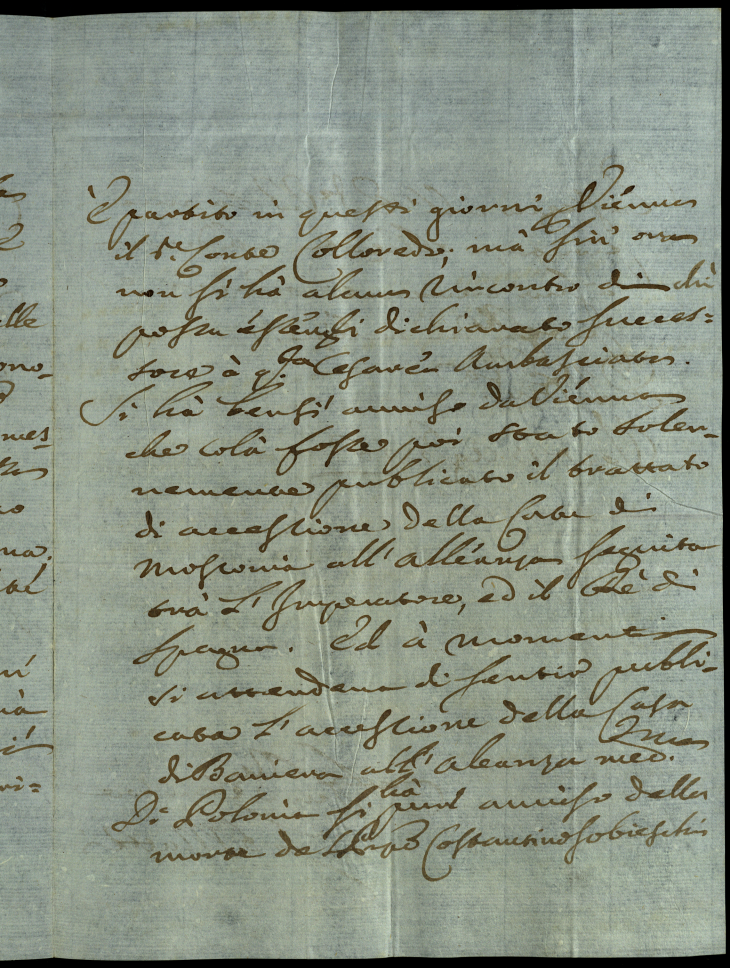 las
elle
ono-
mes-
na.
È partito in questi giorni p Viénna
il Sr. Conte Colloredo; mà sin' ora
non si hà alcun' rincontro di chi
possa éssersi dichiarato succes-
sore à qta. Cesarea Ambasciata.
Si hà bensi auuiso da Viénna
che colà fosse poi stato solen-
nemente publicato il trattato
di accessione della Czara di
Moscouia all'alleánza seguita
trà l'Imperatore, ed il Rè di
Spagna. Ed à momenti
si attendeua di sentir publi-
cata l'accessione della Casa
di Bauiera all'aleanza medma.
Di Polonia si hà pure auuiso della
morte del Costantino Sobieschi